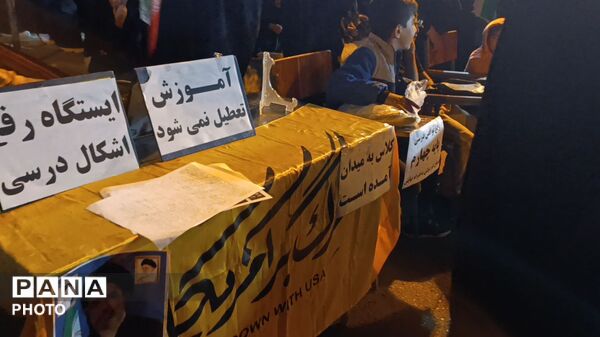 ایستگاه رفع
اشکال درسی
آموزش
تعطیل نمی شود
کلاس به میدان
آمده است
پایه چهارم
مرگ بر آمریکا
DOWN WITH USA
PANA
PHOTO